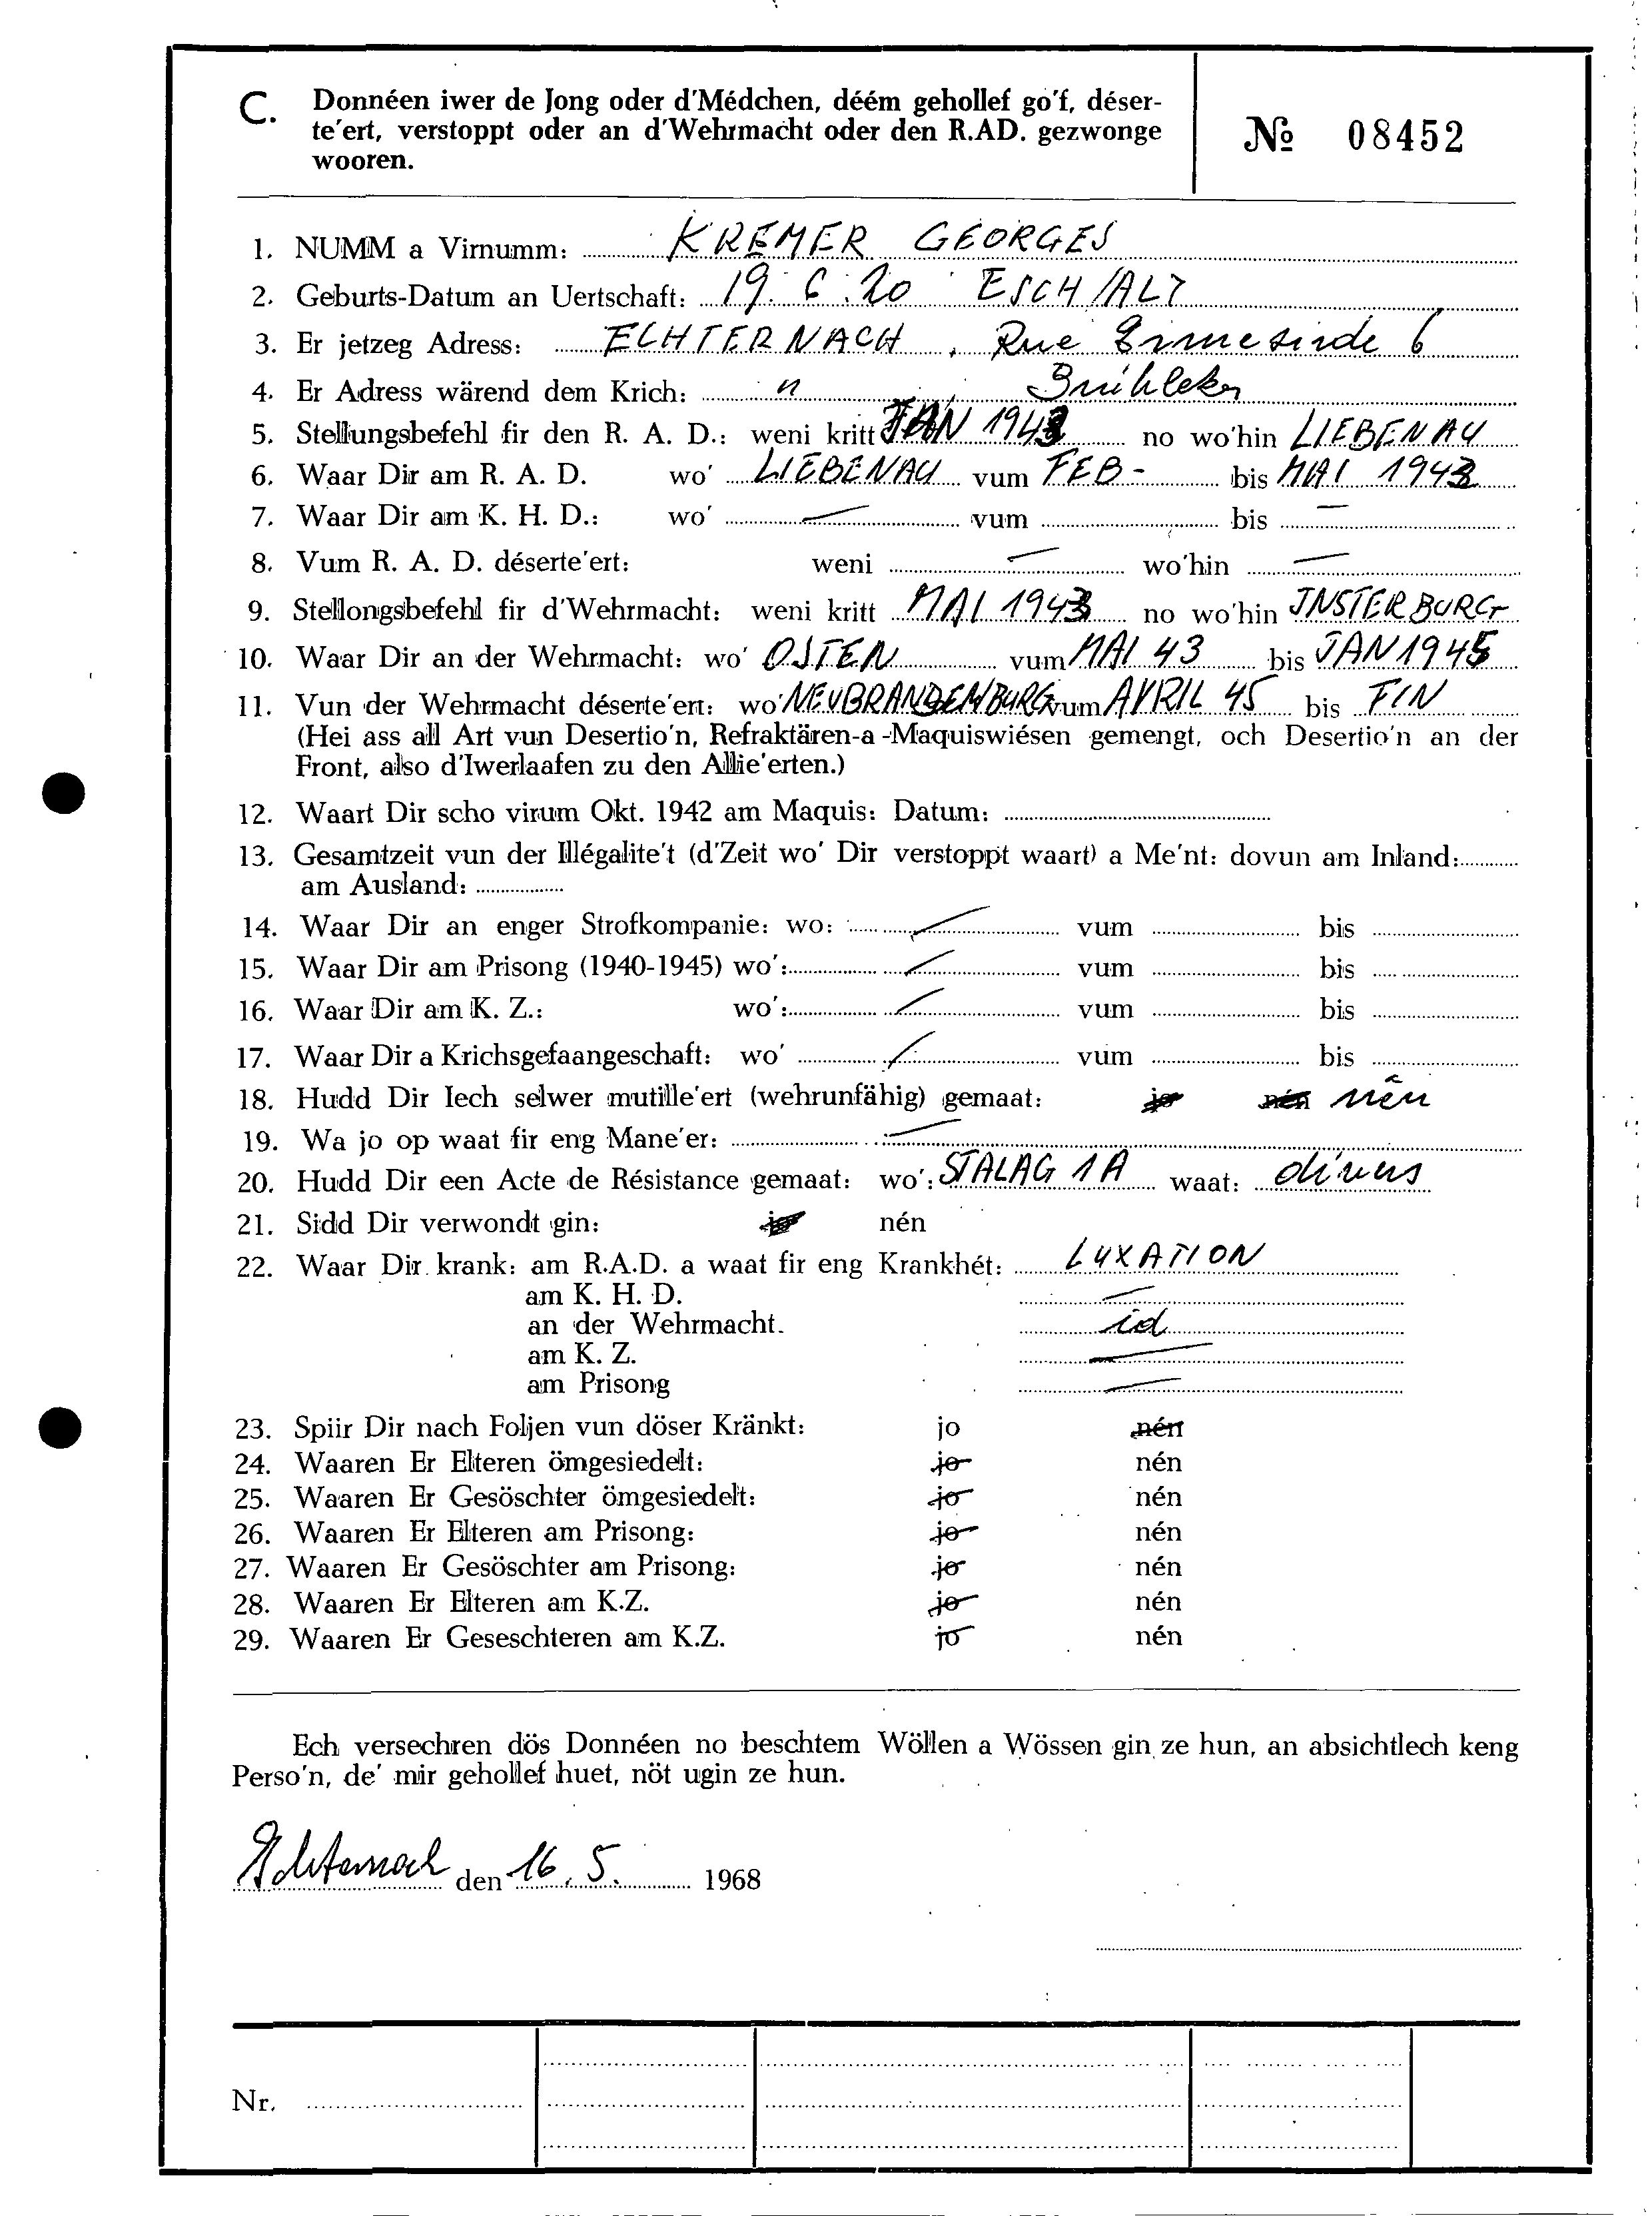 C. Donnéen iwer de Jong oder d'Médchen, déém gehollef go'f, déser-
te'ert, verstoppt oder an d'Wehrmacht oder den R.AD. gezwonge
wooren.
№ 08452
1. NUMM a Virnumm: KREMER GEORGES
2. Geburts-Datum an Uertschaft: 19. 6. 20 ESCH/ALZ
3. Er jetzeg Adress: ECHTERNACH, Rue Ermesinde 6
4. Er Adress wärend dem Krich: "
5. Stellungsbefehl fir den R. A. D.: weni kritt JAN 1943 no wo'hin LIEBENAU
6. Waar Dir am R. A. D. wo' LIEBENAU vum FEB - bis MAI 1943
7. Waar Dir am K. H. D.: wo' — vum bis —
8. Vum R. A. D. déserte'ert: weni — wo'hin —
9. Stellongsbefehl fir d'Wehrmacht: weni kritt MAI 1943 no wo'hin INSTERBURG
10. Waar Dir an der Wehrmacht: wo' OSTEN vum MAI 43 bis JAN 1945
11. Vun der Wehrmacht déserte'ert: wo' NEUBRANDENBURG vum AVRIL 45 bis FIN
(Hei ass all Art vun Desertio'n, Refraktären-a -Maquiswiésen gemengt, och Desertio'n an der
Front, also d'Iwerlaafen zu den Allie'erten.)
12. Waart Dir scho virum Okt. 1942 am Maquis: Datum:
13. Gesamtzeit vun der Illégalite't (d'Zeit wo' Dir verstoppt waart) a Me'nt: dovun am Inland:
am Ausland:
14. Waar Dir an enger Strofkompanie: wo: — vum bis
15. Waar Dir am Prisong (1940-1945) wo': — vum bis
16. Waar Dir am K. Z.: wo': — vum bis
17. Waar Dir a Krichsgefaangeschaft: wo' — vum bis
18. Hudd Dir Iech selwer mutille'ert (wehrunfähig) gemaat: jo nén nên
19. Wa jo op waat fir eng Mane'er: —
20. Hudd Dir een Acte de Résistance gemaat: wo': STALAG 1A waat: divers
21. Sidd Dir verwondt gin: jo nén
22. Waar Dir krank: am R.A.D. a waat fir eng Krankhét: LUXATION
am K. H. D. —
an der Wehrmacht. id
am K. Z. —
am Prisong —
23. Spiir Dir nach Foljen vun döser Kränkt: jo nén
24. Waaren Er Elteren ömgesiedelt: jo nén
25. Waaren Er Gesöschter ömgesiedelt: jo nén
26. Waaren Er Elteren am Prisong: jo nén
27. Waaren Er Gesöschter am Prisong: jo nén
28. Waaren Er Elteren am K.Z. jo nén
29. Waaren Er Geseschteren am K.Z. jo nén
Ech versechren dös Donnéen no beschtem Wöllen a Wössen gin ze hun, an absichtlech keng
Perso'n, de' mir gehollef huet, nöt ugin ze hun.
Echternach den 16. 5. 1968
Nr.